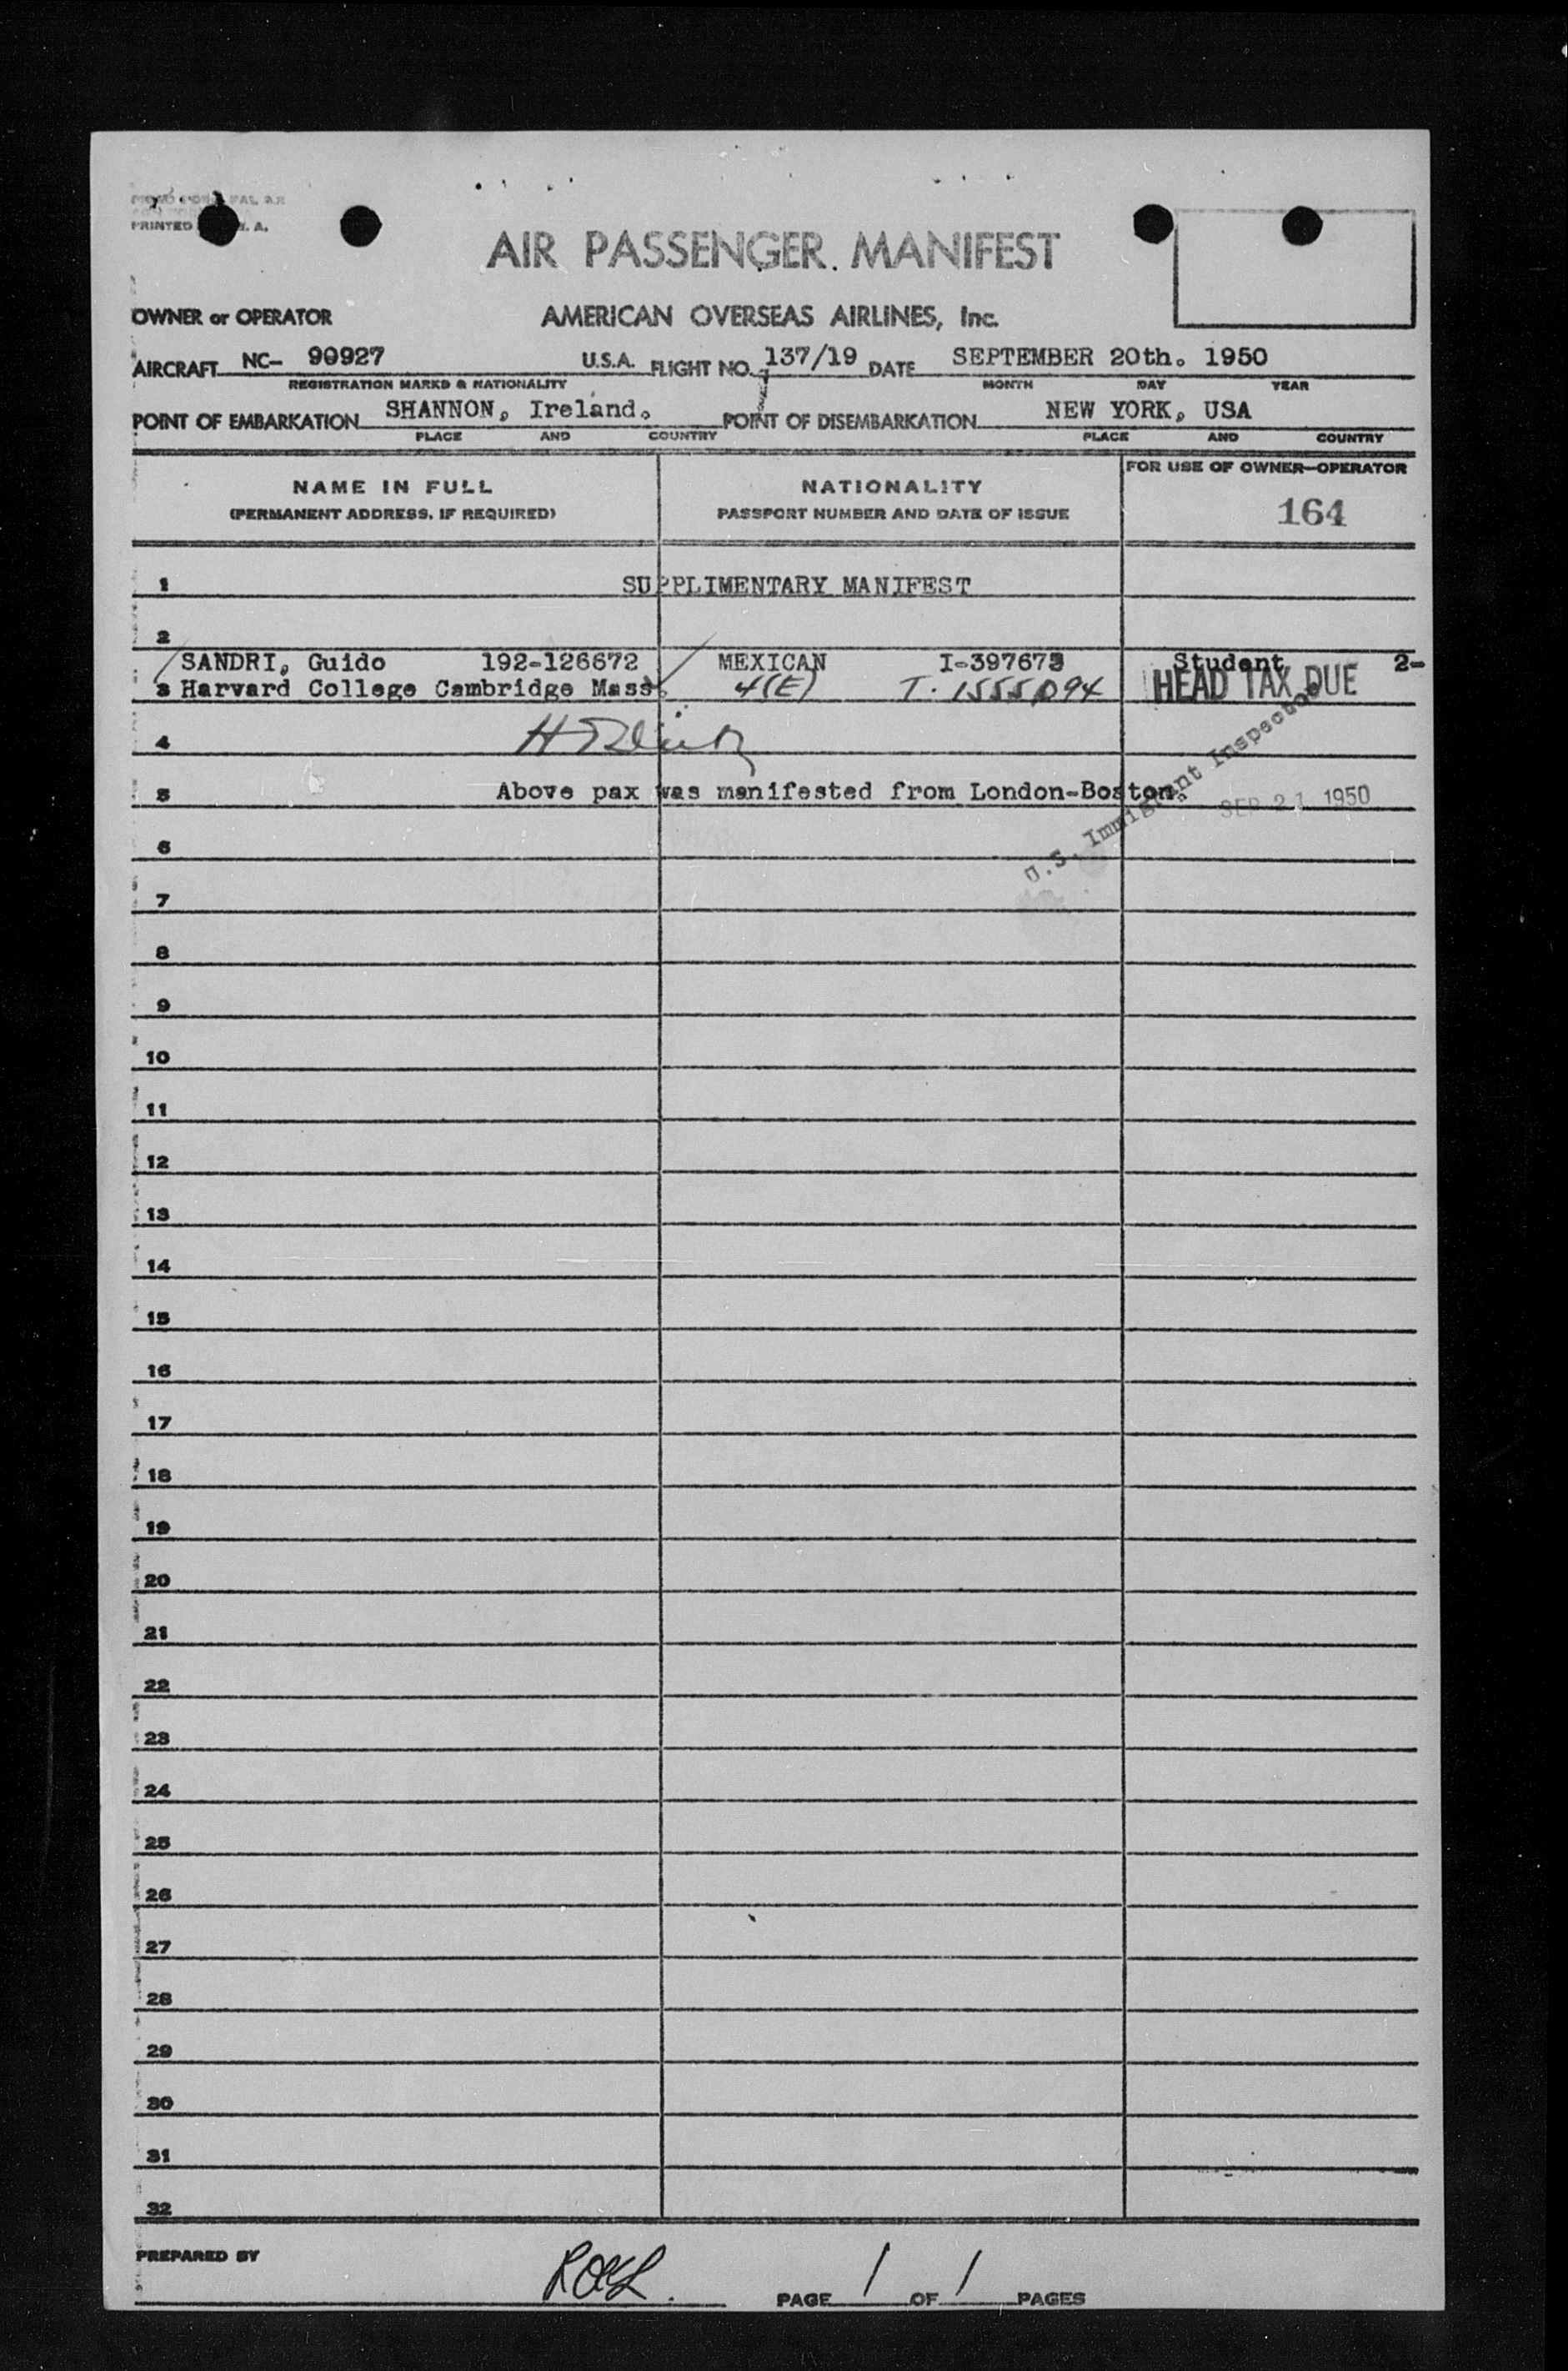 PRINTED
AIR PASSENGER MANIFEST
OWNER or OPERATOR AMERICAN OVERSEAS AIRLINES, Inc.
AIRCRAFT NC- 90927 U.S.A. FLIGHT NO. 137/19 DATE SEPTEMBER 20th. 1950
REGISTRATION MARKS & NATIONALITY MONTH DAY YEAR
POINT OF EMBARKATION SHANNON, Ireland. POINT OF DISEMBARKATION NEW YORK, USA
PLACE AND COUNTRY PLACE AND COUNTRY
FOR USE OF OWNER-OPERATOR
NAME IN FULL NATIONALITY
(PERMANENT ADDRESS, IF REQUIRED) PASSPORT NUMBER AND DATE OF ISSUE 164
1 SUPPLIMENTARY MANIFEST
2
SANDRI, Guido 192-126672 MEXICAN I-397673 Student 2-
3 Harvard College Cambridge Mass. 4(E) T. 1555094 HEAD TAX DUE
4
5 Above pax was manifested from London-Boston.
U.S. Immigrant Inspector
SEP 21 1950
6
7
8
9
10
11
12
13
14
15
16
17
18
19
20
21
22
23
24
25
26
27
28
29
30
31
32
PREPARED BY
PAGE 1 OF 1 PAGES